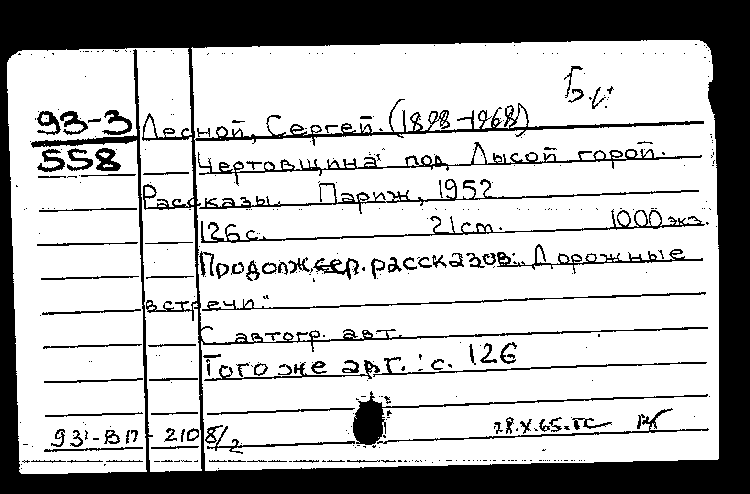 Б.и.
93-3 Лесной, Сергей. (1898-1968)
558 Чертовщина под Лысой горой.
Рассказы. Париж, 1952
126 с. 21 ст. 1000 экз.
Продолж. сер. рассказов: "Дорожные
встречи".
С автогр. авт.
Того же авт.: с. 126
93-ВП-2108/2